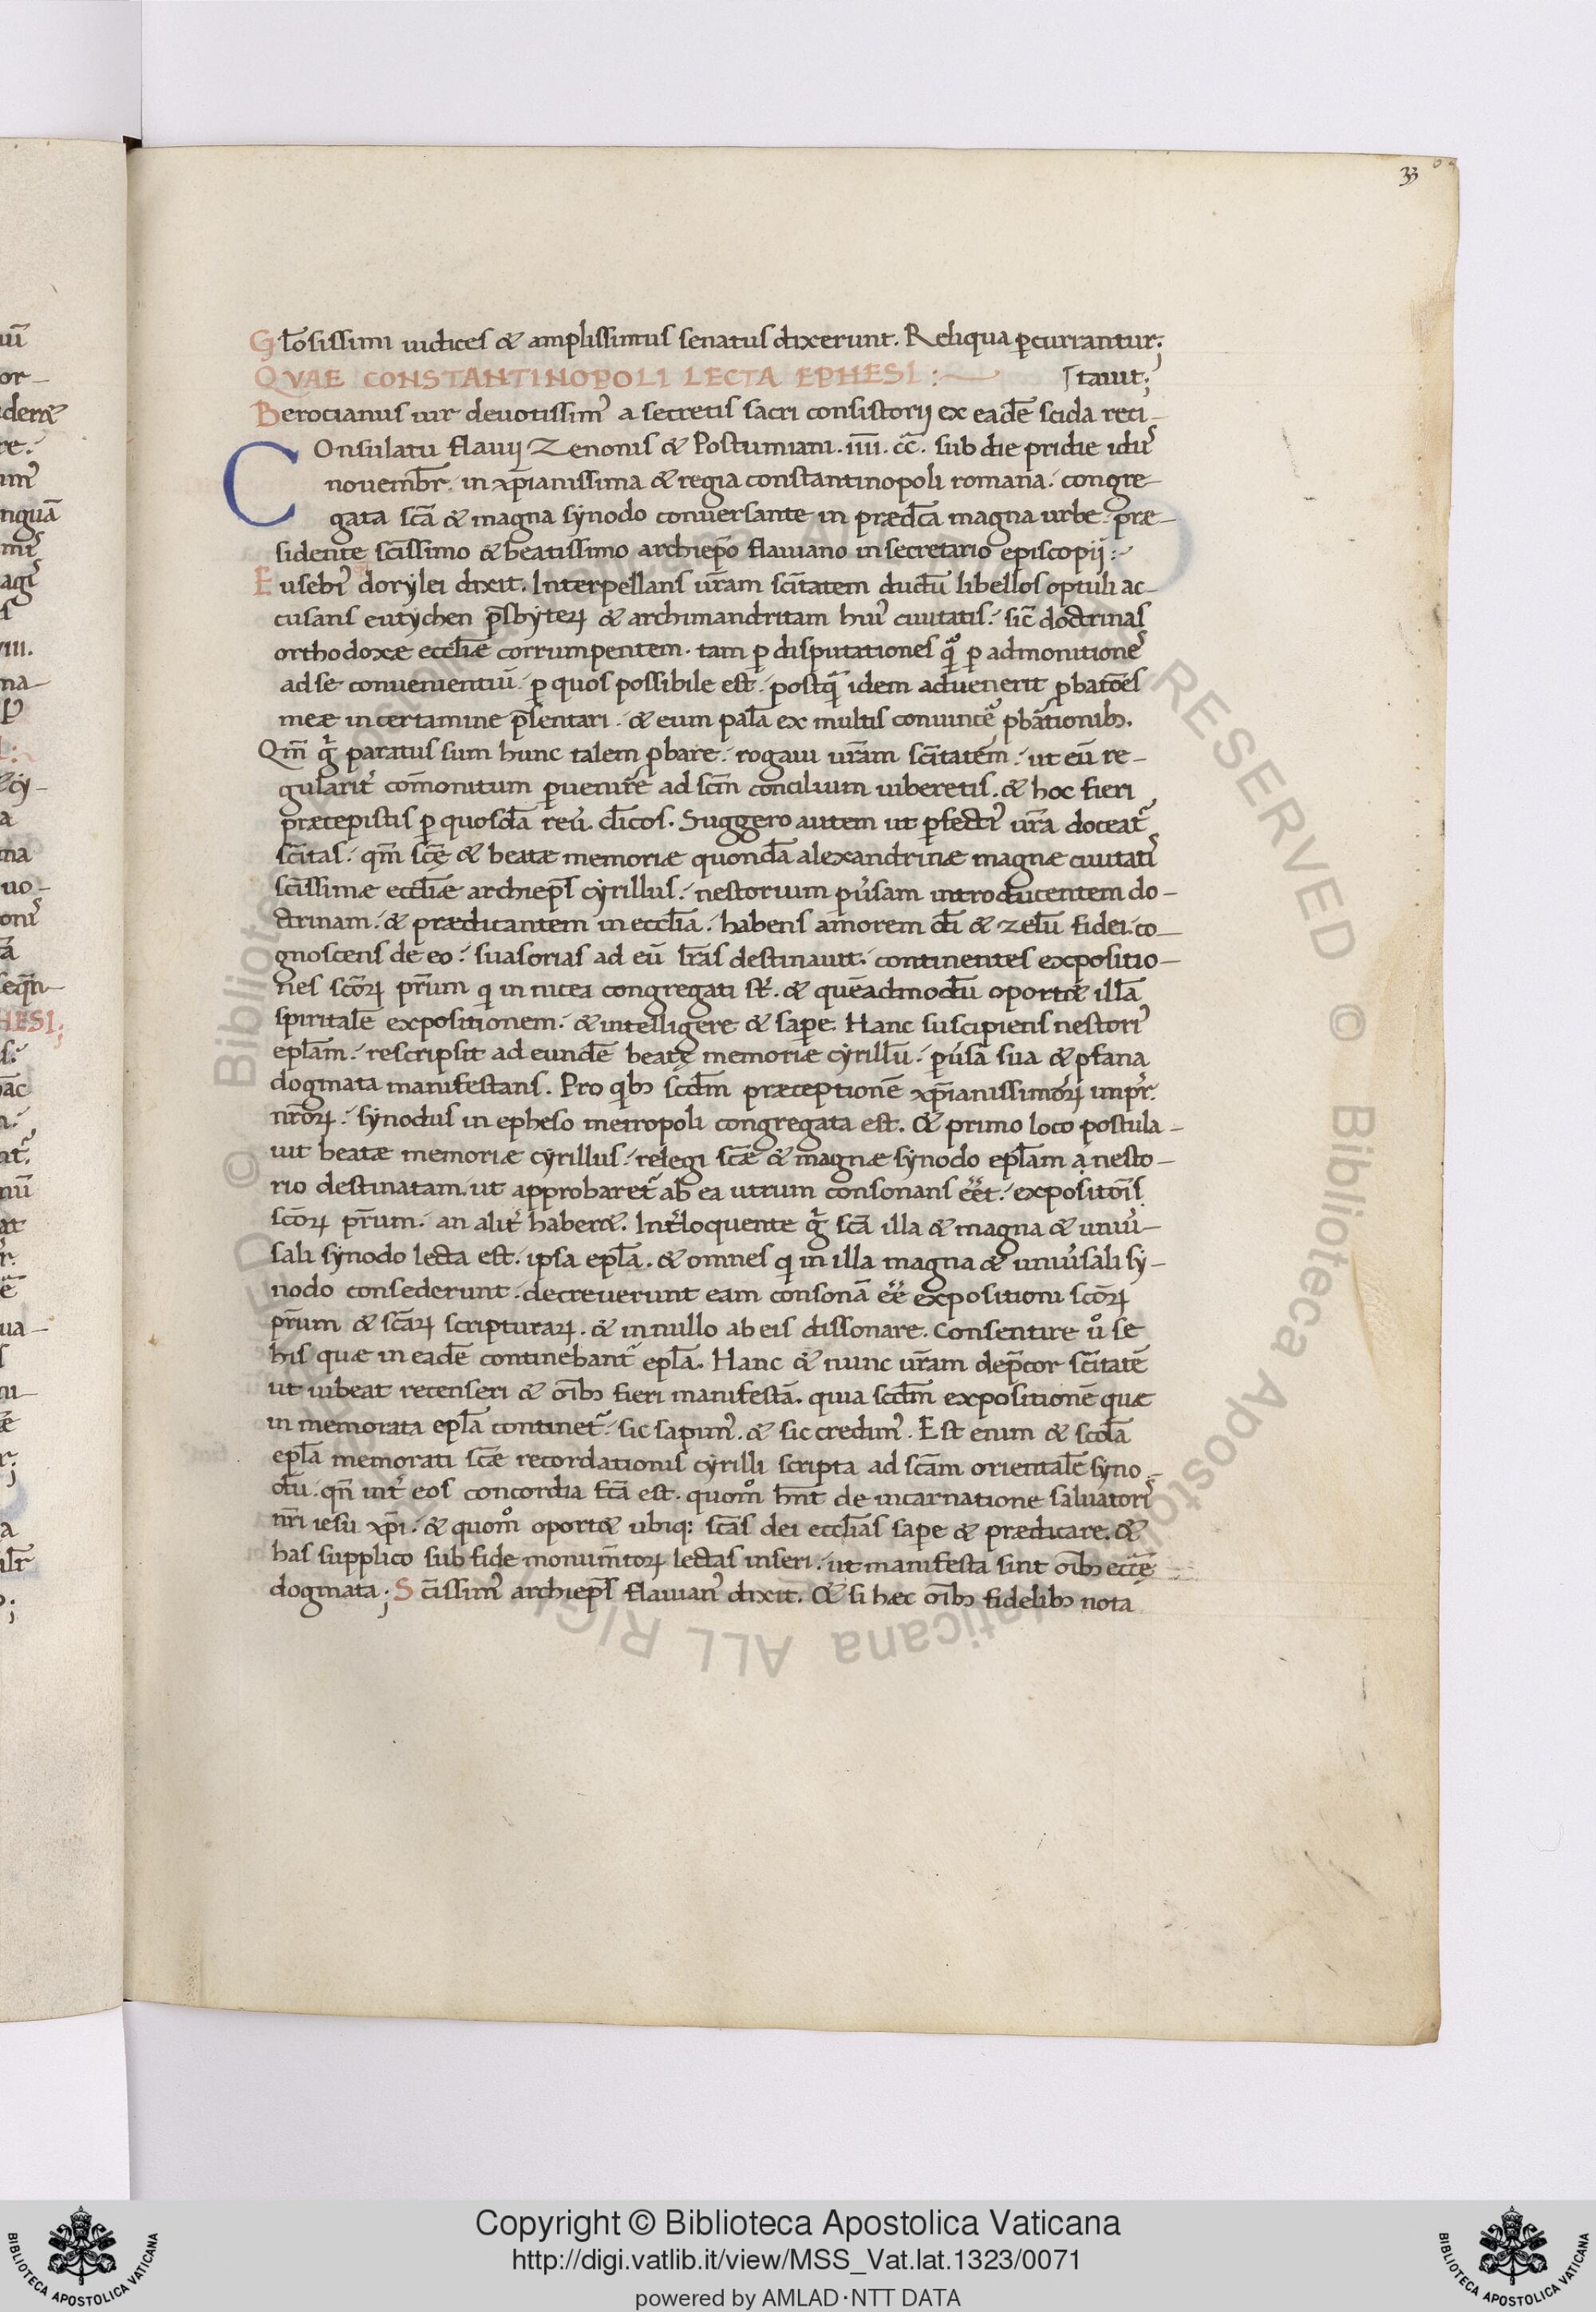 33
Gl̄osissimi iudices & amplissimus senatus dixerunt. Reliqua ꝑcurrantur;
QVAE CONSTANTINOPOLI LECTA EPHESI :~ ⌈tauit;
Berocianus uir deuotissimꝰ a secretis sacri consistorij ex eadē scida reci-
COnsulatu flauij Zenonis & Postumiani. iiii. cc̄. sub die pridie idus
nouemb̄r. in xp̄ianissima & regia constantinopoli romana. congre-
gata sc̄a & magna synodo conuersante in præd̄ca magna urbe. præ-
sidente sc̄issimo & beatissimo archiep̄o flauiano in secretario episcopij:~
Eusebiꝰ dorylei dixit. Interpellans ur̄am sc̄itatem dudū libellos optuli ac-
cusans eutychen p̄sbyterꝝ & archimandritam huiꝰ ciuitatis. sic̄ doctrinas
orthodoxæ eccl̄iæ corrumpentem. tam ꝑ disputationes qͣ̄ ꝑ admonitiones
ad se conuenientiū. ꝑ quos possibile est. postq̄ idem aduenerit ꝓbatōes
meæ in certamine p̄sentari. & eum palā ex multis conuinci ꝓbātionibꝫ.
Qm̄ gͥ paratus sum hunc talem ꝓbare. rogaui ur̄am sc̄itatem. ut eū re-
gularit̉ com̄onitum ꝑuenire ad sc̄m concilium iuberetis. & hoc fieri
præcepistis ꝑ quosdā reū. cl̄icos. Suggero autem ut ꝑfectiꝰ ur̄a doceat̉
sc̄itas. qm̄ sc̄ę & beatæ memoriæ quondā alexandrinæ magnæ ciuitatis
sc̄issimæ eccl̄iæ archiep̄s cyrillus. nestorium ꝑuersam introducentem do-
ctrinam. & prædicantem in eccl̄ia. habens amorem d̄i & zelū fidei. co-
gnoscens de eo. suasorias ad eū l̄ras destinauit. continentes expositio-
nes sc̄orꝝ pr̄um qui in nicea congregati st̄. & quēadmodū oport& illā
spiritalē expositionem. & intelligere & sapere. Hanc suscipiens nestoriꝰ
epl̄am. rescripsit ad eundē beatę memoriæ cyrillū. ꝑuersa sua & ꝓfana
dogmata manifestans. Pro quibꝫ sc̄dm præceptionē xp̄ianissimorꝝ impr̄.
nr̄orꝝ. synodus in epheso metropoli congregata est. & primo loco postula-
uit beatæ memoriæ cyrillus. relegi sc̄æ & magnæ synodo epl̄am a nesto-
rio destinatam. ut approbaret̉ ab ea utrum consonans eēt. expositōis
sc̄orꝝ pr̄um. an alit̉ haber&. Int̉loquente gͥ sc̄a illa & magna & uniu̓-
sali synodo lecta est. ipsa epl̄a. & omnes qui in illa magna & uniu̓sali sy-
nodo consederunt. decreuerunt eam consonā eē expositioni sc̄orꝝ
pr̄um & sc̄arꝝ scripturarꝝ. & in nullo ab eis dissonare. Consentire uͦ se
his quæ in eadē continebant̉ epl̄a. Hanc & nunc ur̄am dep̄cor sc̄itatē
ut iubeat recenseri & oīibꝫ fieri manifestā. quia sc̄dm expositionē quæ
in memorata epl̄a continet̉. sic sapimꝰ. & sic credimꝰ. Est enim & sc̄da
epl̄a memorati sc̄æ recordationis cyrilli scripta ad sc̄am orientalē syno-
dū. qn̄ int̉ eos concordia fc̄a est. quomͦ hn̄t de incarnatione saluatoris
nr̄i iesu xp̄i. & quomͦ oport& ubiqꝫ sc̄as dei eccl̄ias sapere & prædicare. &
has supplico sub fide monum̄torꝝ lectas inseri. ut manifesta sint oīibꝫ ecc̄ę
dogmata; Sc̄issimꝰ archiep̄s flauianꝰ dixit. & si hæc oīibꝫ fidelibꝫ nota
Copyright © Biblioteca Apostolica Vaticana
http://digi.vatlib.it/view/MSS_Vat.lat.1323/0071
powered by AMLAD·NTT DATA